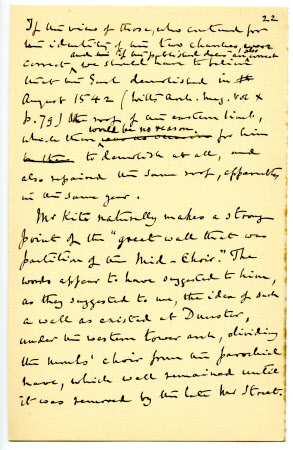 22
If the views of those, who contend for
the identity of the two chancels, were
and this list he published does also correct
correct, we should have to believe
that the Earl demolished in
August 1542 (Wilts Arch. Mag. Vol X
p. 79) the roof of the eastern limb,
would be no reason,
which there was no occasion for him
to demolish at all, and
also repaired the same roof, apparently
in the same year.
Mr Kite naturally makes a strong
point of the "great wall that was
partition of the Mid-Choir." The
words appear to have suggested to him,
as they suggested to me, the idea of such
a wall as existed at Dunster,
under the western tower arch, dividing
the monks' choir from the parochial
nave, which wall remained until
it was removed by the late Mr Street.